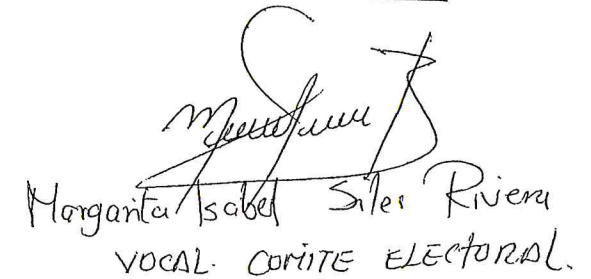 Margarita Isabel Siles Rivera
VOCAL. COMITE ELECTORAL.